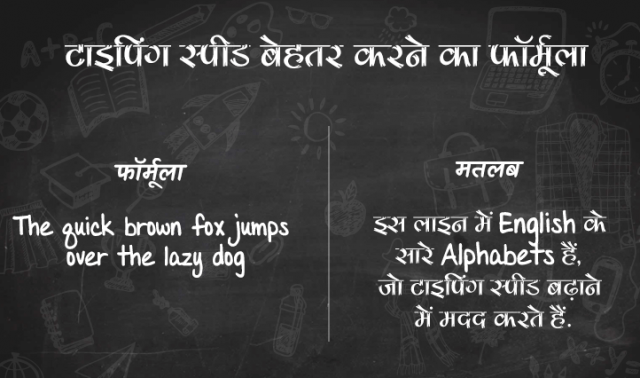 टाइपिंग स्पीड बेहतर करने का फॉर्मूला
फॉर्मूला
The quick brown fox jumps
over the lazy dog
मतलब
इस लाइन में English के
सारे Alphabets हैं,
जो टाइपिंग स्पीड बढ़ाने
में मदद करते हैं.